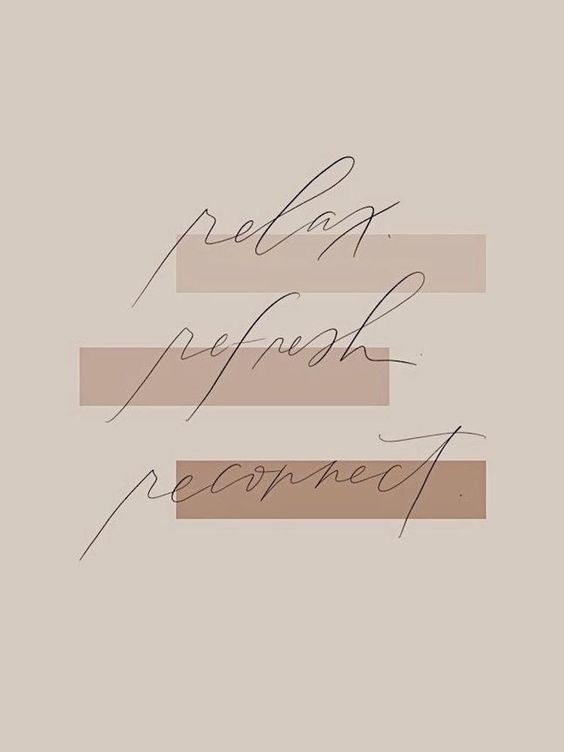 relax.
refresh.
reconnect.